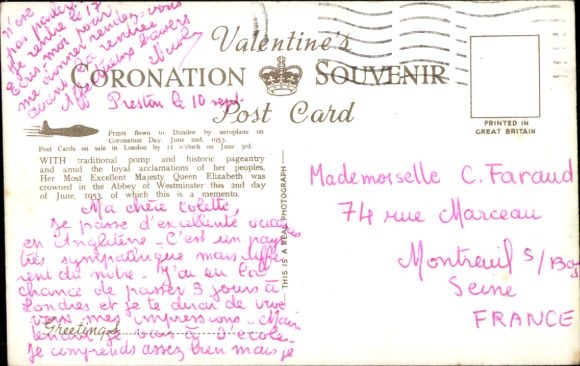 n'ose
pas parler.
Je rentre le 17
Ecris moi pour
me donner rendez-vous
avant la rentrée
Affectueux baisers
Valentine's
CORONATION SOUVENIR
Post Card
Preston le 10 sept.
PRINTED IN
GREAT BRITAIN
Prints flown to Dundee by aeroplane on
Coronation Day, June 2nd, 1953.
Post Cards on sale in London by 11 o'clock on June 3rd.
WITH traditional pomp and historic pageantry
and amid the loyal acclamations of her peoples,
Her Most Excellent Majesty Queen Elizabeth was
crowned in the Abbey of Westminster this 2nd day
of June, 1953, of which this is a memento.
THIS IS A REAL PHOTOGRAPH
Ma chère Colette,
Je passe d'excellentes vacances
en Angleterre - C'est un pays
très sympathique mais diffé
rent du nôtre - J'ai eu la
chance de passer 3 jours à
Londres et je te dirai de vive
voix mes impressions - Main
Greetings
tenant je vais à l'école
Je comprends assez bien mais je
Mademoiselle C. Faraud
74 rue Marceau
Montreuil s/Bois
Seine
FRANCE